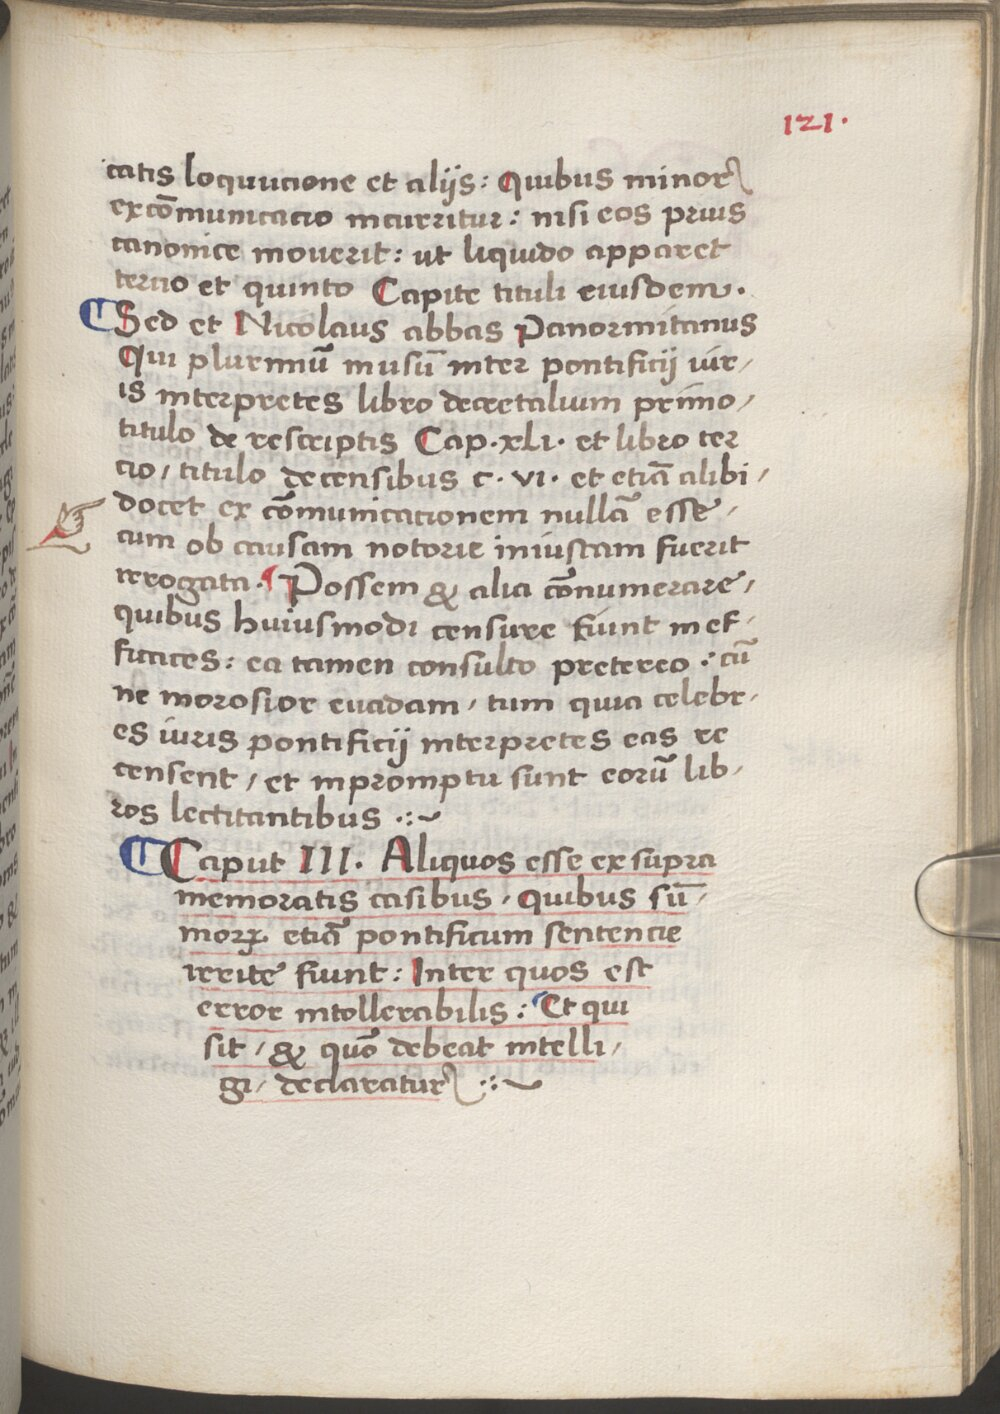 121.
catis loquucione et alijs: Quibus minor
excōmunicacio incurritur: nisi eos prius
canonice monerit: ut liquido apparet
tercio et quinto Capite tituli eiusdem.
Sed et Nicolaus abbas Panormitanus
Qui plurimū inusū inter pontificij iur,
is interpretes libro decretalium primo,
titulo de rescriptis Cap. xLi. et libro ter
cio, titulo decensibus c. vi. et etiā alibi,
docet ex cōmunicacionem nullā esse,
cum ob causam notorie iniustam fuerit
irrogata. Possem & alia cōnumerare,
quibus huiusmodi censure fiunt inef-
ficaces: ea tamen consulto pretereo: cū
ne morosior euadam, tum quia celebr,
es iuris pontificij interpretes eas re
censent, et inpromptu sunt eorū lib,
ros lectitantibus .:~
Caput III. Aliquos esse ex supra
memoratis casibus, quibus sū,
morꝝ etiā pontificum sentencie
irrite fiunt: Inter quos est
error intollerabilis: Et qui
sit, & quō debeat intelli,
gi, declaratur .:~